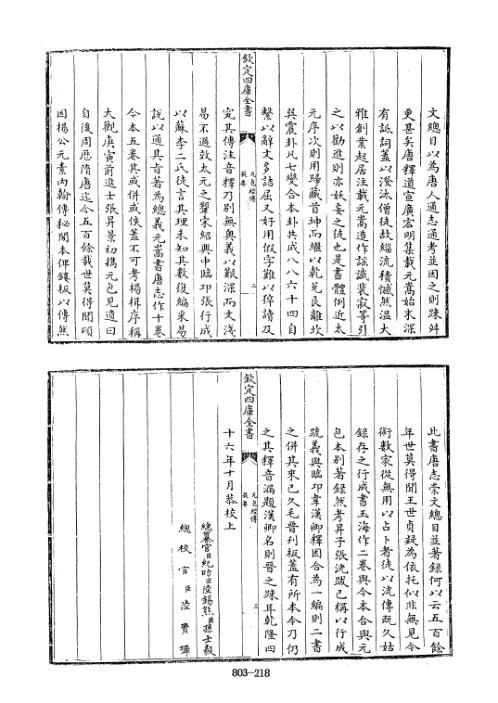 欽定四庫全書
元包經傳
提要
二
文總目以為唐人通志通考並因之則疎舛
更甚矣唐釋道宣廣宏明集載元嵩始末深
有詆詞蓋以澄汰僧徒故緇流積憾然溫大
雅創業起居注載元嵩造作謠讖裴寂等引
之以勸進則亦妖妄之徒也是書體例近太
元序次則用歸藏首坤而繼以乾兌艮離坎
巽震卦凡七變合本卦共成八八六十四自
繫以辭文多詰屈又好用假字難以猝讀及
究其傳注音釋乃別無奧義以艱深而文淺
易不過效太元之顰宋紹興中臨卭張行成
以蘇李二氏徒言其理未知其數復編采易
說以通其旨著為總義元嵩書唐志作十卷
今本五卷其或併或佚蓋不可考楊楫序稱
大觀庚寅前進士張昇景初攜元包見遺曰
自後周歴隋唐迄今五百餘載世莫得聞頃
因楊公元素內翰傳秘閣本俾鏤板以傳然
欽定四庫全書
元包經傳
提要
三
此書唐志崇文總目並著録何以云五百餘
年世莫得聞王世貞疑為依托似非無見今
術數家從無用以占卜者徒以流傳既久姑
録存之行成書玉海作二卷與今本合與元
包本別著録然考昇子張洸跋已稱以行成
疏義與臨卭韋漢卿釋因合為一編則二書
之併其來已久毛晉刋板蓋有所本今乃仍
之其釋音漏題漢卿名則晉之疎耳乾隆四
十六年十月恭校上
總纂官臣紀昀臣陸錫熊臣孫士毅
總校官臣陸費墀
803-218